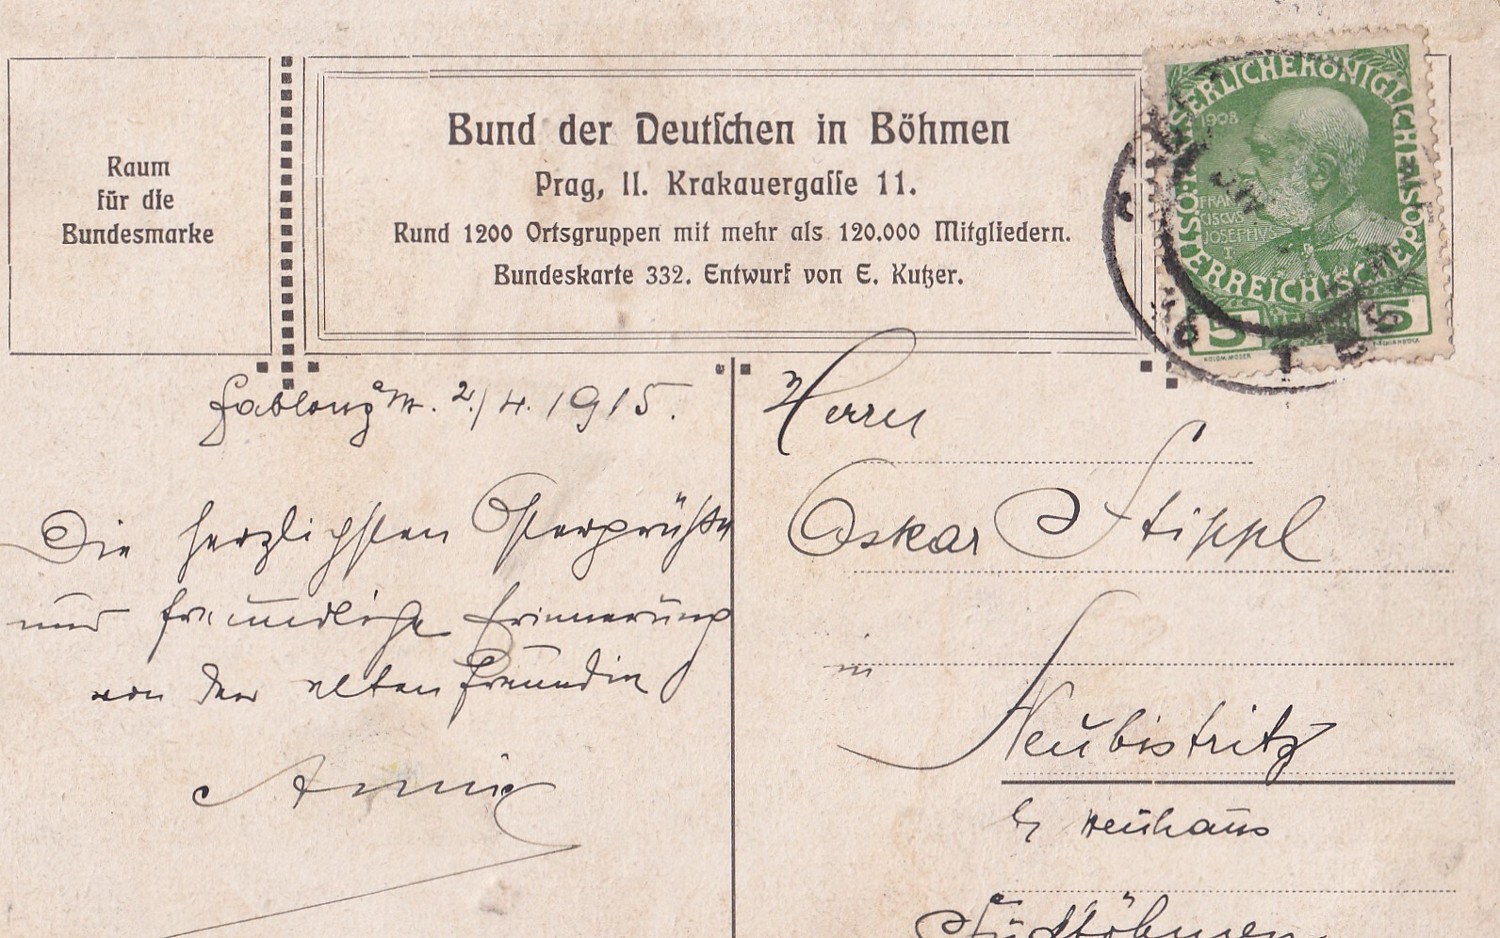 Raum
für die
Bundesmarke
Bund der Deutschen in Böhmen
Prag, II. Krakauergasse 11.
Rund 1200 Ortsgruppen mit mehr als 120.000 Mitgliedern.
Bundeskarte 332. Entwurf von E. Kutzer.
KAISERLICHE KÖNIGLICHE ÖSTERREICHISCHE POST
1908
FRAN
CISCVS
JOSEPHVS
I
5 5
KOLOM. MOSER
Gablonz a/N. 2./4. 1915.
Die herzlichsten Ostergrüße
und freundliche Erinnerung
von der alten Freundin
Herrn
Oskar Stippl
in
Neubistritz
b/ Neuhaus
Südböhmen